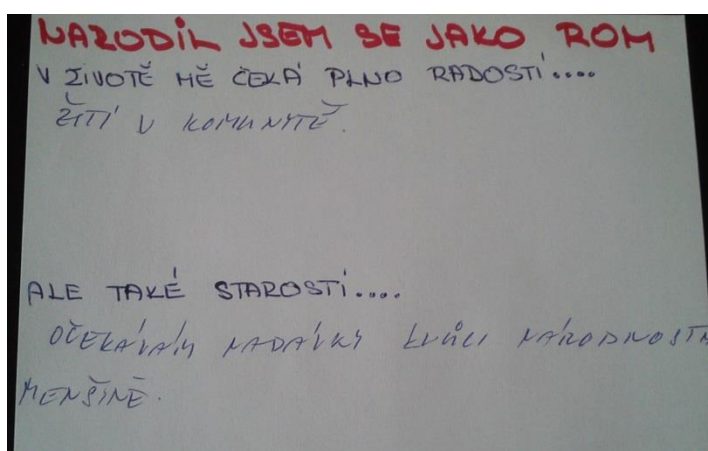 NARODIL JSEM SE JAKO ROM
V ŽIVOTĚ MĚ ČEKÁ PLNO RADOSTÍ....
ŽITÍ V KOMUNYTĚ.
ALE TAKÉ STAROSTÍ....
OČEKÁVÁM NADÁVKY KVŮLI NÁRODNOSTN
MENŠINĚ.